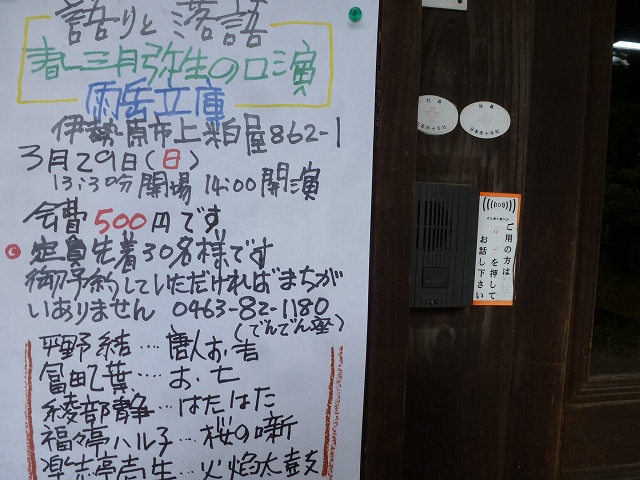 語りと落語
春三月弥生の口演
雨岳文庫
伊勢原市上粕屋862-1
3月29日(日)
13:30分開場 14:00開演
会費500円です
定員先着30名様です
御予約していただければまちが
いありません 0463-82-1180
(でんでん座)
平野結…唐人お吉
冨田乙葉…お・七
綾部静…はたはた
福々亭ハル子…桜の噺
楽志亭壱生…火焔太鼓
社員
日本赤十字社
社員
日本赤十字社
インターホン
ご用の方は
を押して
お話し下さい